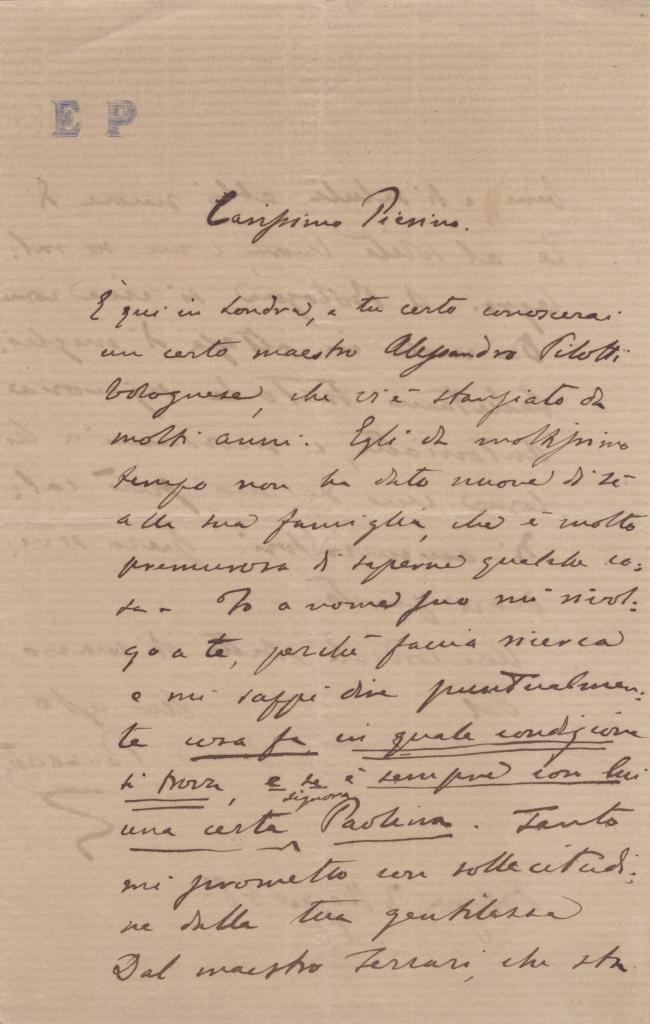 E P
Carissimo Pierino.
È qui in Londra, e tu certo conoscerai
un certo maestro Alessandro Pilotti
bolognese, che vi è stanziato da
molti anni. Egli da moltissimo
tempo non ha dato nuove di sè
alla sua famiglia, che è molto
premurosa di saperne qualche co=
sa - Io a nome suo mi rivol=
go a te, perchè faccia ricerca
e mi sappi dire puntualmen=
te cosa fa, in quale condizione
si trova, e se è sempre con lui
signora
una certa Paolina. Tanto
mi prometto con sollecitudi=
ne dalla tua gentilezza
Dal maestro Ferrari, che sta